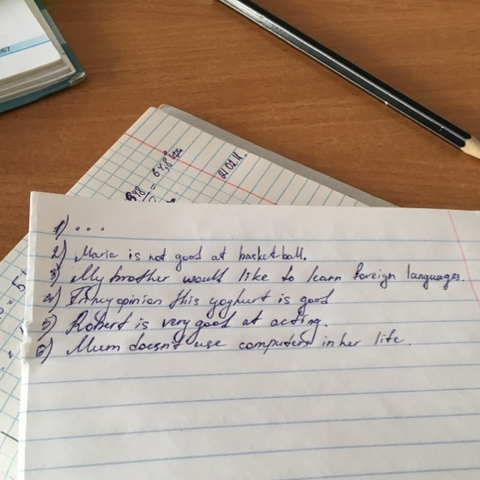 1) ...
2) Maria is not good at basketball.
3) My brother would like to learn foreign languages.
4) In my opinion this yoghurt is good
5) Robert is very good at acting.
6) Mum doesn't use computers in her life.